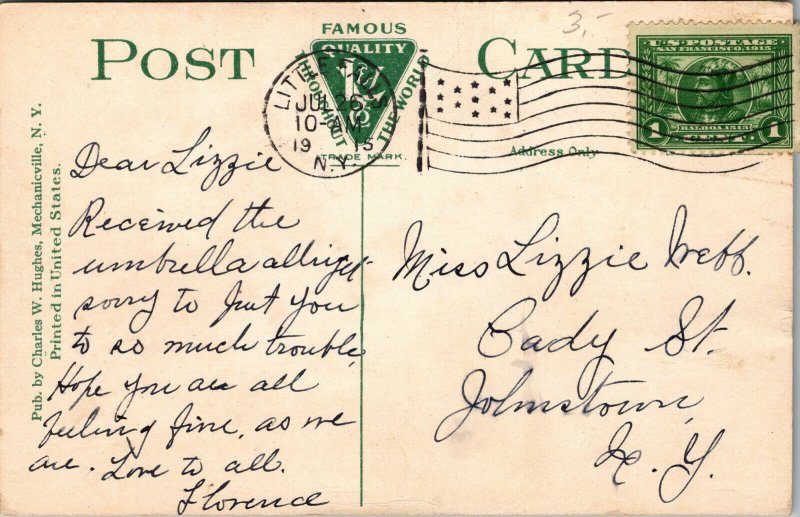 3.-
FAMOUS
POST CARD
QUALITY
THROUGHOUT THE WORLD
TRADE MARK.
LITTLE FALLS
JUL 26
10-AM
1915
N.Y.
U.S. POSTAGE
SAN FRANCISCO, 1915
BALBOA 1513
1 CENT 1
Address Only
Pub. by Charles W. Hughes, Mechanicville, N. Y.
Printed in United States.
Dear Lizzie
Received the
umbrella allright
sorry to put you
to so much trouble
Hope you are all
feeling fine, as we
are. Love to all.
Florence
Miss Lizzie Webb.
Cady St.
Johnstown,
N. Y.